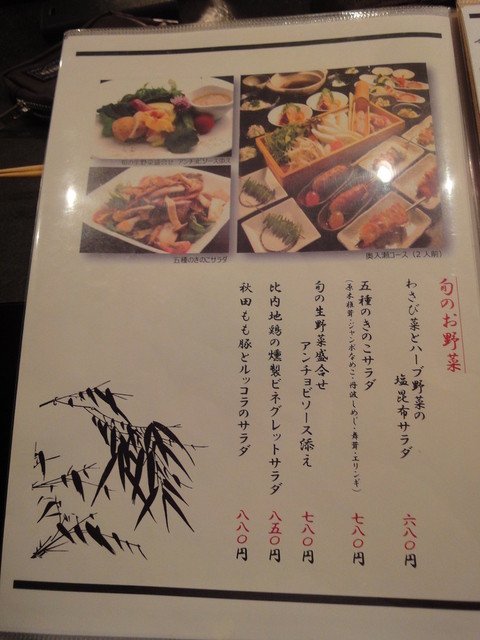 旬の生野菜盛合せ アンチョビソース添え
五種のきのこサラダ
奥入瀬コース(2人前)
旬のお野菜
わさび菜とハーブ野菜の
塩昆布サラダ
六八〇円
五種のきのこサラダ
七八〇円
(原木椎茸・ジャンボなめこ・丹波しめじ・舞茸・エリンギ)
旬の生野菜盛合せ
アンチョビソース添え
七八〇円
比内地鶏の燻製ビネグレットサラダ
八五〇円
秋田もも豚とルッコラのサラダ
八八〇円